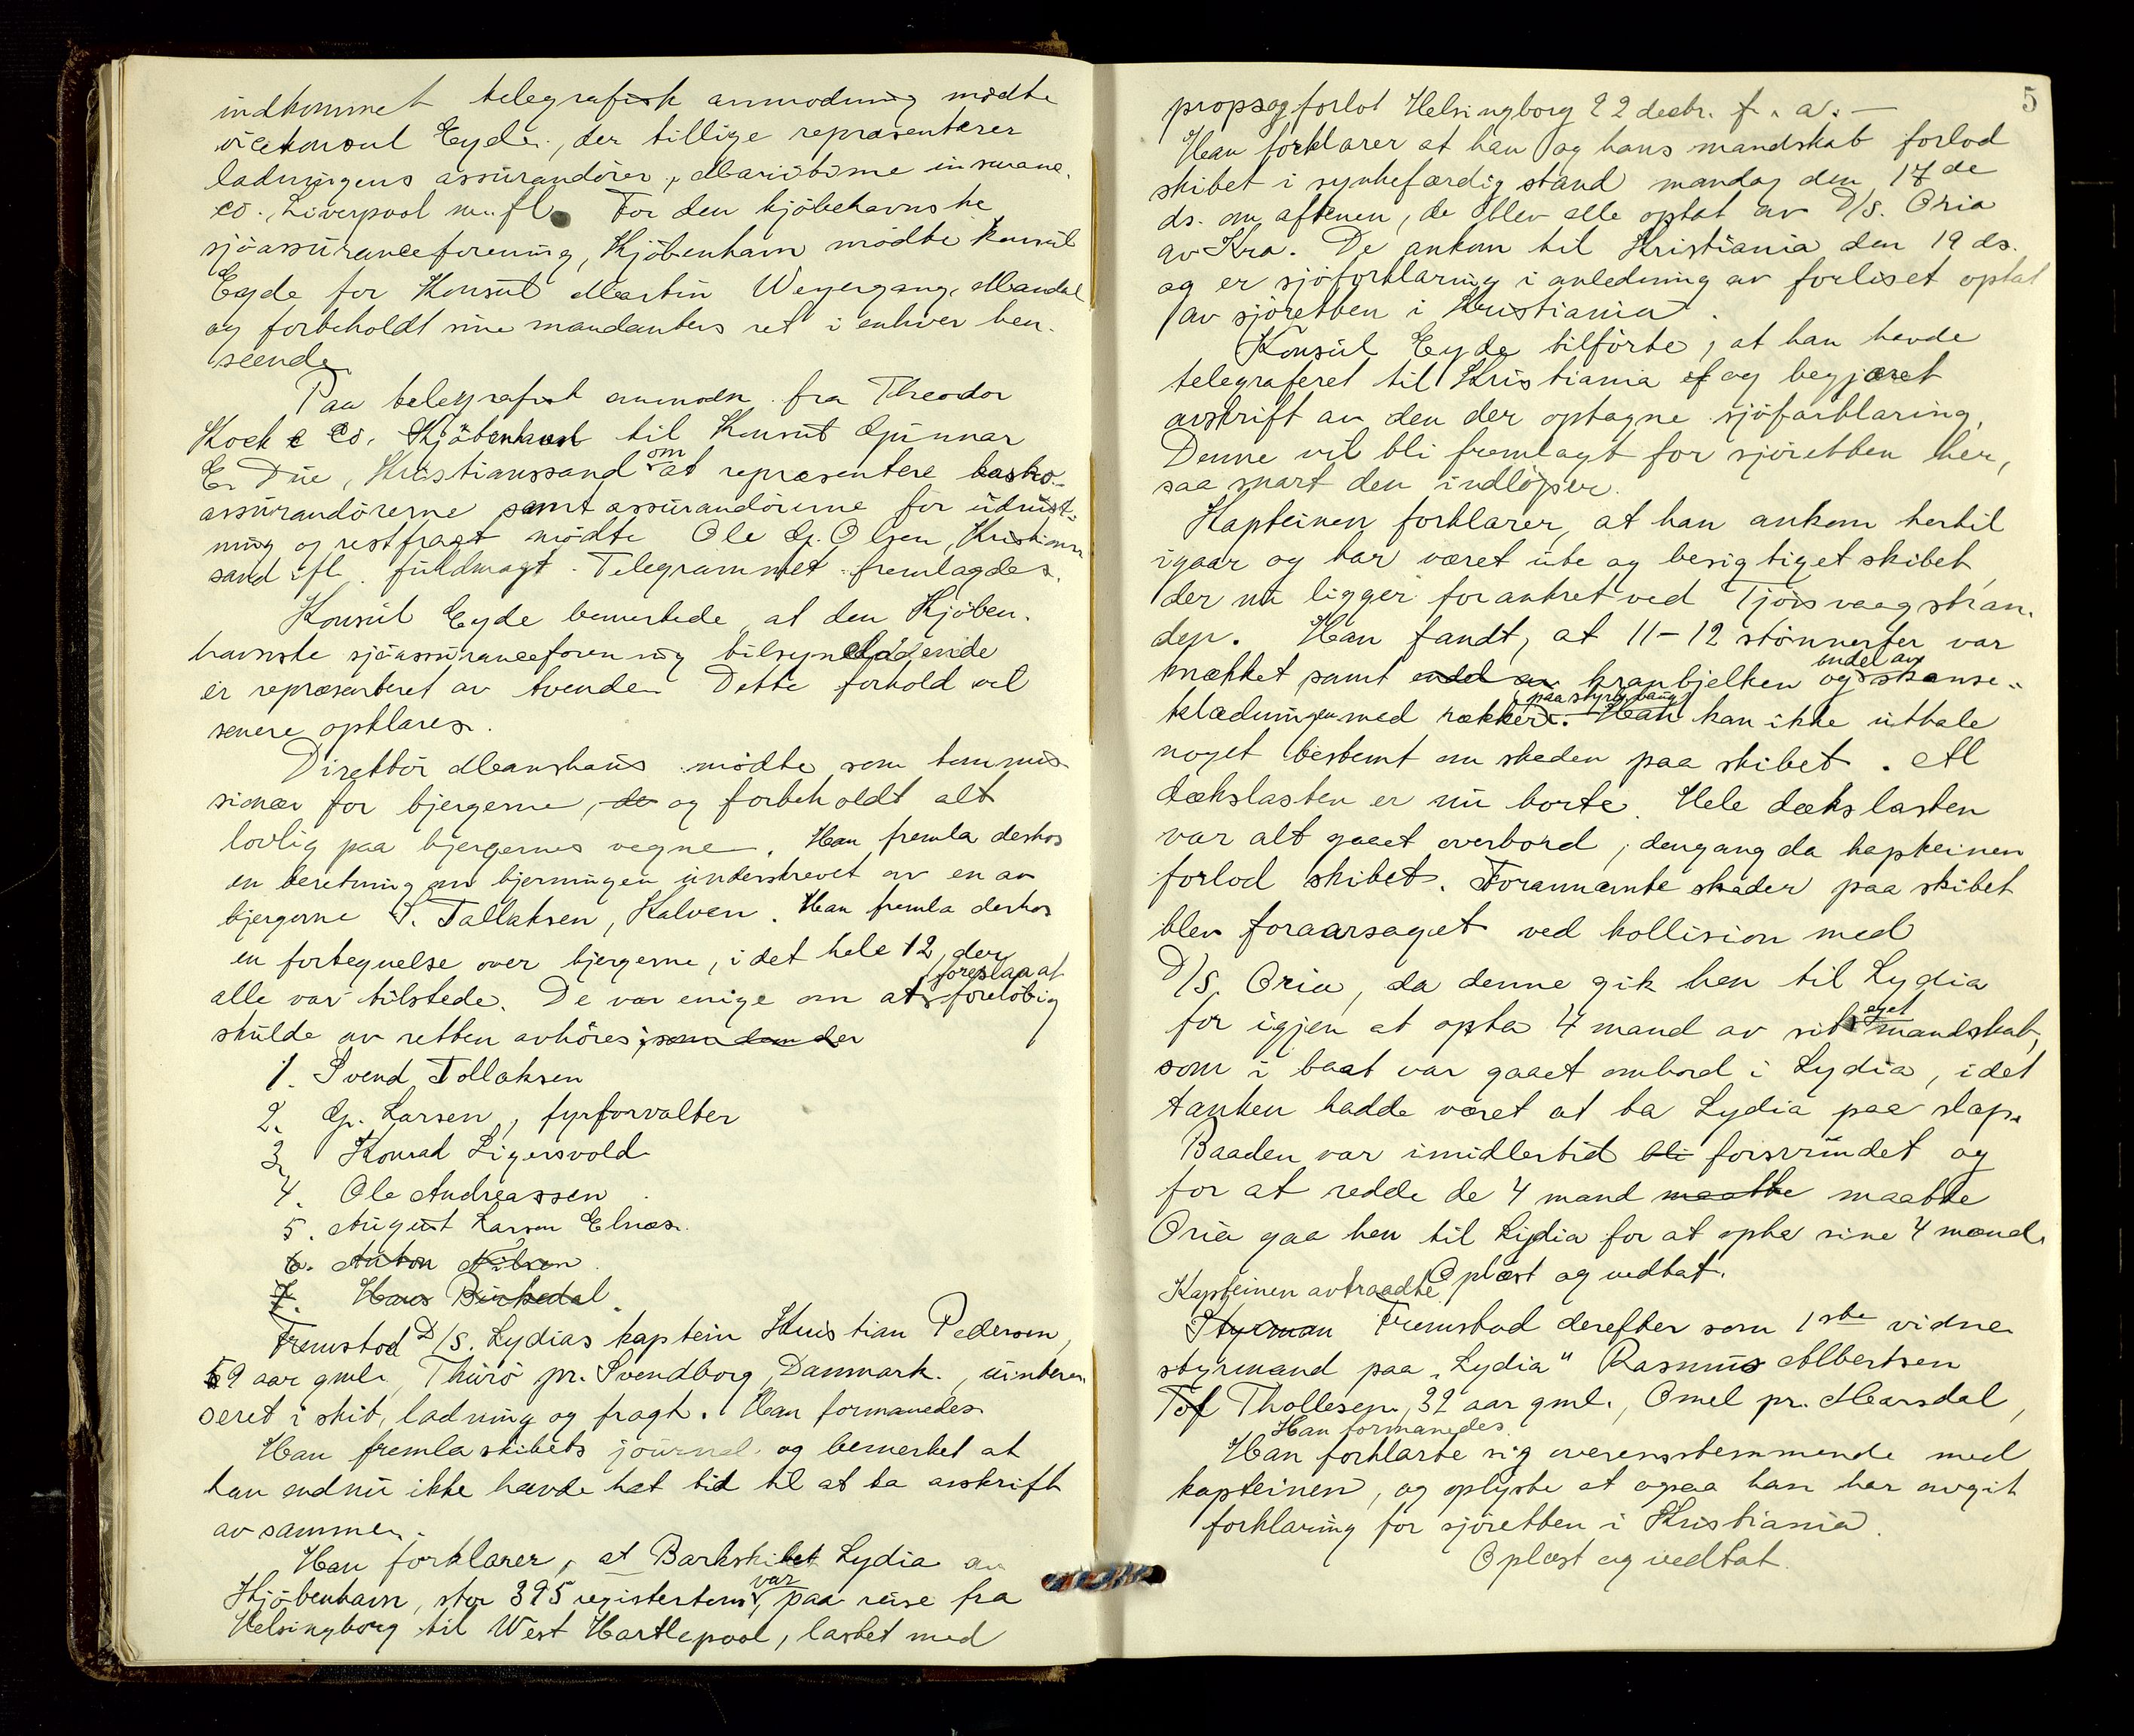 indkommet telegrafisk anmodning mødte
vicekonsul Eyde, der tillige repræsenterer
ladningens assurandører, Maritime insurance.
co. Liverpool m. fl. For den kjøbehavnske
sjøassuranceforening, Kjøbenhavn mødte konsul
Eyde for Konsul Martin Weyergang, Mandal
og forbeholdt sine mandanters ret i enhver hen-
seende.
Paa telegrafisk anmodn. fra Theodor
Kock & Co. Kjøbenhavn til Konsul Gunnar
E. Due, Kristianssand om at repræsentere kasko-
assurandørerne samt assurandørerne for udrust-
ning og restfragt mødte Ole G. Olsen, Kristians
sand ifl. fuldmagt. Telegrammet fremlagdes.
Konsul Eyde bemerkede, at den Kjøben-
havnske sjøassuranceforening tilsyneladende
er repræsenteret av tvende. Dette forhold vil
senere opklares.
Direktør Manshaus mødte som kommis
sionær for bjergerne, de og forbeholdt alt
lovlig paa bjergernes vegne. Han fremla derhos
en beretning om bjerningen underskrevet av en av
bjergerne S. Tallaksen, Kalven. Han fremla derhos
en fortegnelse over bjergerne, i det hele 12, der
alle var tilstede. De var enige om at foreslaa at foreløbig
skulde av retten avhøres: som dem der
1. Svend Tollaksen
2. G. Larsen, fyrforvalter
3. Konrad Ligersvold
4. Ole Andreassen
5. August Larsen Elnæs.
6. Anton Nilsen
7. Hans Birkedal.
Fremstod D/S. Lydias kaptein Kristian Pedersen,
59 aar gml. Thurø pr. Svendborg, Danmark., uinteres
seret i skib, ladning og fragt. Han formanedes
Han fremla skibets journal og bemerket at
han endnu ikke havde hat tid til at ta avskrift
av samme.
Han forklarer, at Barkskibet Lydia av
Kjøbenhavn, stor 395 registertons, var paa reise fra
Helsingborg til West Hartlepool, lastet med
5
props og forlot Helsingborg 22 decbr. f. a. —
Han forklarer at han og hans mandskab forlod
skibet i synkefærdig stand mandag den 17de
ds. om aftenen, de blev alle optat av D/S. Oria
av Kra. De ankom til Kristiania den 19 ds.
og er sjøforklaring i anledning av forliset optat
av sjøretten i Kristiania.
Konsul Eyde tilførte, at han havde
telegraferet til Kristiania ef og begjæret
avskrift av den der optagne sjøforklaring,
Denne vil bli fremlagt for sjøretten her,
saa snart den indløper.
Kapteinen forklarer, at han ankom hertil
igaar og har været ute og besigtiget skibet,
der nu ligger forankret ved Tjørsvaagstran-
den. Han fandt, at 11–12 støtter var
knækket samt endel av kranbjelken og endel av skanse-
klædningen med rækker paa styrb. baug. Han kan ikke uttale
noget bestemt om skaden paa skibet. Al
dækslasten er nu borte. Hele dækslasten
var alt gaaet overbord, dengang da kapteinen
forlod skibet. Forannævnte skader paa skibet
blev foraarsaget ved kollision med
D/S. Oria, da denne gik hen til Lydia
for igjen at opta 4 mand av sit eget mandskab,
som i baat var gaaet ombord i Lydia, idet
tanken hadde været at ta Lydia paa slæp.
Baaden var imidlertid bli forsvundet og
for at redde de 4 mand maatte maatte
Oria gaa hen til Lydia for at opta sine 4 mænd.
Oplæst og vedtat.
Kapteinen avtraadte
Styrman Fremstod derefter som 1ste vidne
styrmand paa „Lydia" Rasmus Albertsen
Tof Thollesen, 32 aar gml., Omel pr. Marsdal,
Han formanedes.
Han forklarte sig overensstemmende med
kapteinen, og oplyste at ogsaa han har avgit
forklaring for sjøretten i Kristiania.
Oplæst og vedtat.